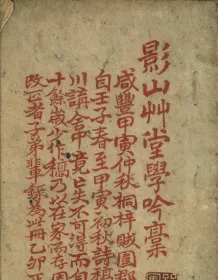 影山艸堂學吟稾
咸豐甲寅仲秋桐梓賊圍郡
自壬子春至甲寅初秋詩稿
川講舍中竟亡失不可得而自
十餘歲少作稿乃以在家而存因
改正者子弟輩錄為此冊乙卯